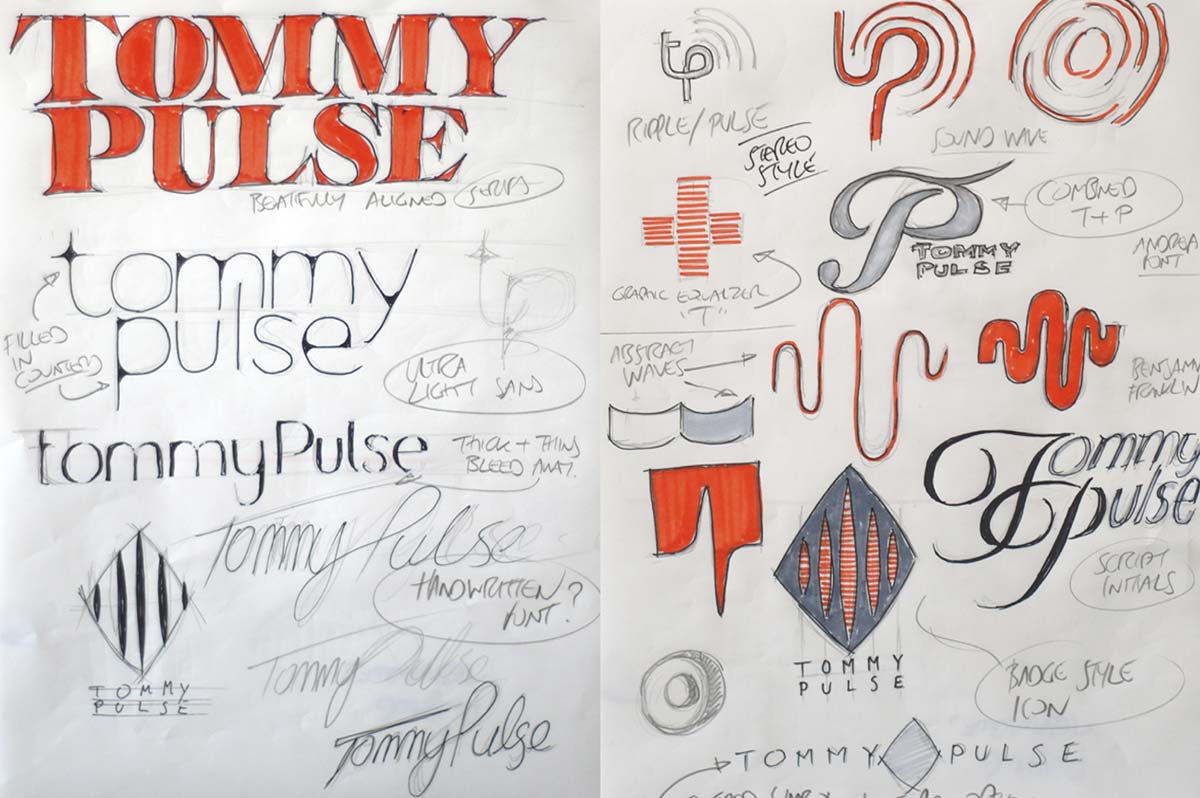 TOMMY
PULSE
BEATIFULLY ALIGNED SERIFS
tommy
pulse
FILLED
IN
COUNTERS
ULTRA
LIGHT SANS
tp
tommyPulse
THICK + THINS
BLEED AWAY.
Tommy Pulse
HANDWRITTEN
FONT?
Tommy Pulse
TOMMY
PULSE
Tommy Pulse
tp
RIPPLE/PULSE
STEREO
STYLE
SOUND WAVE
COMBINED
T+P
TOMMY
PULSE
ANDREA
FONT
GRAPHIC EQUALIZER
"T"
ABSTRACT
WAVES
BENJAMIN
FRANKLIN
Tommy
Pulse
SCRIPT
INITIALS
TOMMY
PULSE
BADGE STYLE
ICON
TOMMY PULSE